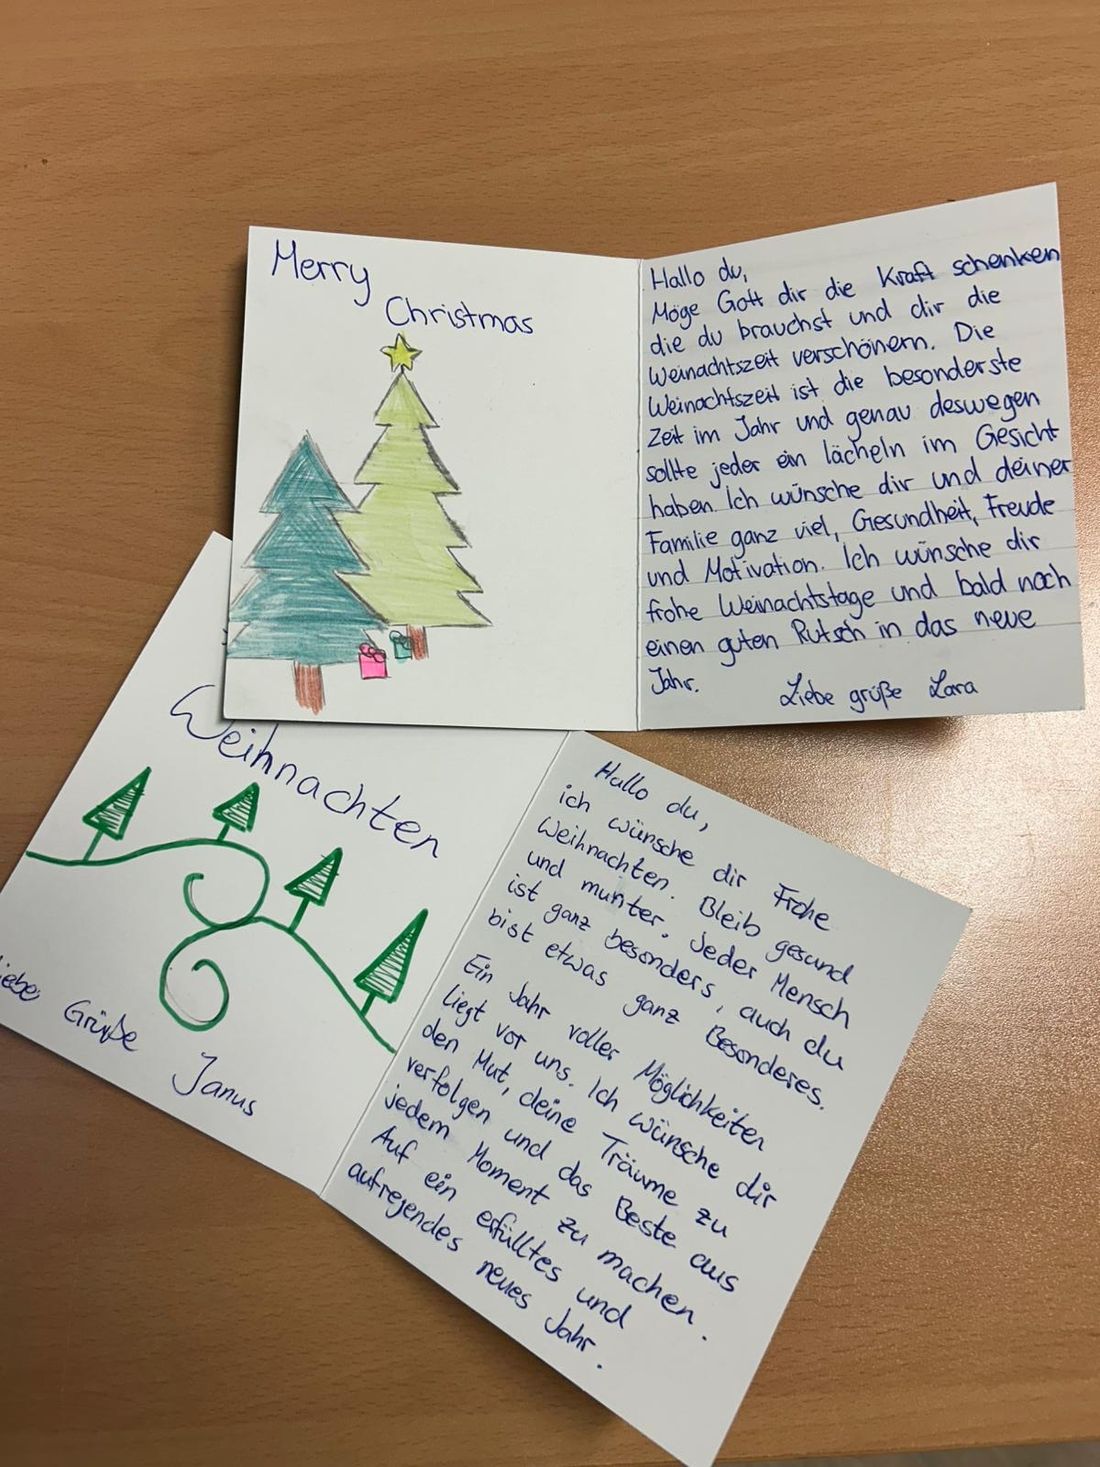 Merry
Christmas
Hallo du,
Möge Gott dir die Kraft schenken
die du brauchst und dir die
Weinachtszeit verschönern. Die
Weinachtszeit ist die besonderste
Zeit im Jahr und genau deswegen
sollte jeder ein lächeln im Gesicht
haben. Ich wünsche dir und deiner
Familie ganz viel, Gesundheit, Freude
und Motivation. Ich wünsche dir
frohe Weinachtstage und bald noch
einen guten Rutsch in das neue
Jahr.
Liebe grüße Lara
Weihnachten
iebe Grüße Janus
Hallo du,
ich wünsche dir Frohe
Weihnachten. Bleib gesund
und munter. Jeder Mensch
ist ganz besonders, auch du
bist etwas ganz Besonderes.
Ein Jahr voller Möglichkeiten
liegt vor uns. Ich wünsche dir
den Mut, deine Träume zu
verfolgen und das Beste aus
jedem Moment zu machen.
Auf ein erfülltes und
aufregendes neues Jahr.